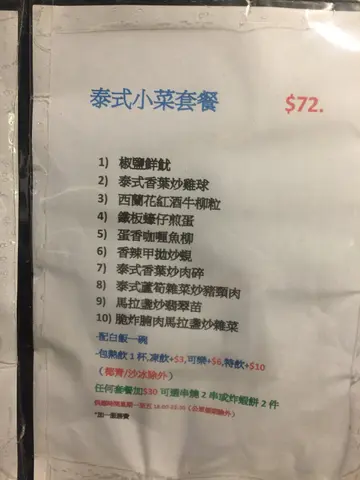 泰式小菜套餐 $72.
1) 椒鹽鮮魷
2) 泰式香葉炒雞球
3) 西蘭花紅酒牛柳粒
4) 鐵板蠔仔煎蛋
5) 蛋香咖喱魚柳
6) 香辣甲拋炒蜆
7) 泰式香葉炒肉碎
8) 泰式蘆筍雜菜炒豬頸肉
9) 馬拉盞炒翡翠苗
10) 脆炸腩肉馬拉盞炒雜菜
-配白飯一碗
-包熱飲1杯,凍飲+$3,可樂+$6,特飲+$10
(椰青/沙冰除外)
任何套餐加$30 可選串燒 2 串或炸蝦餅 2 件
*加一服務費